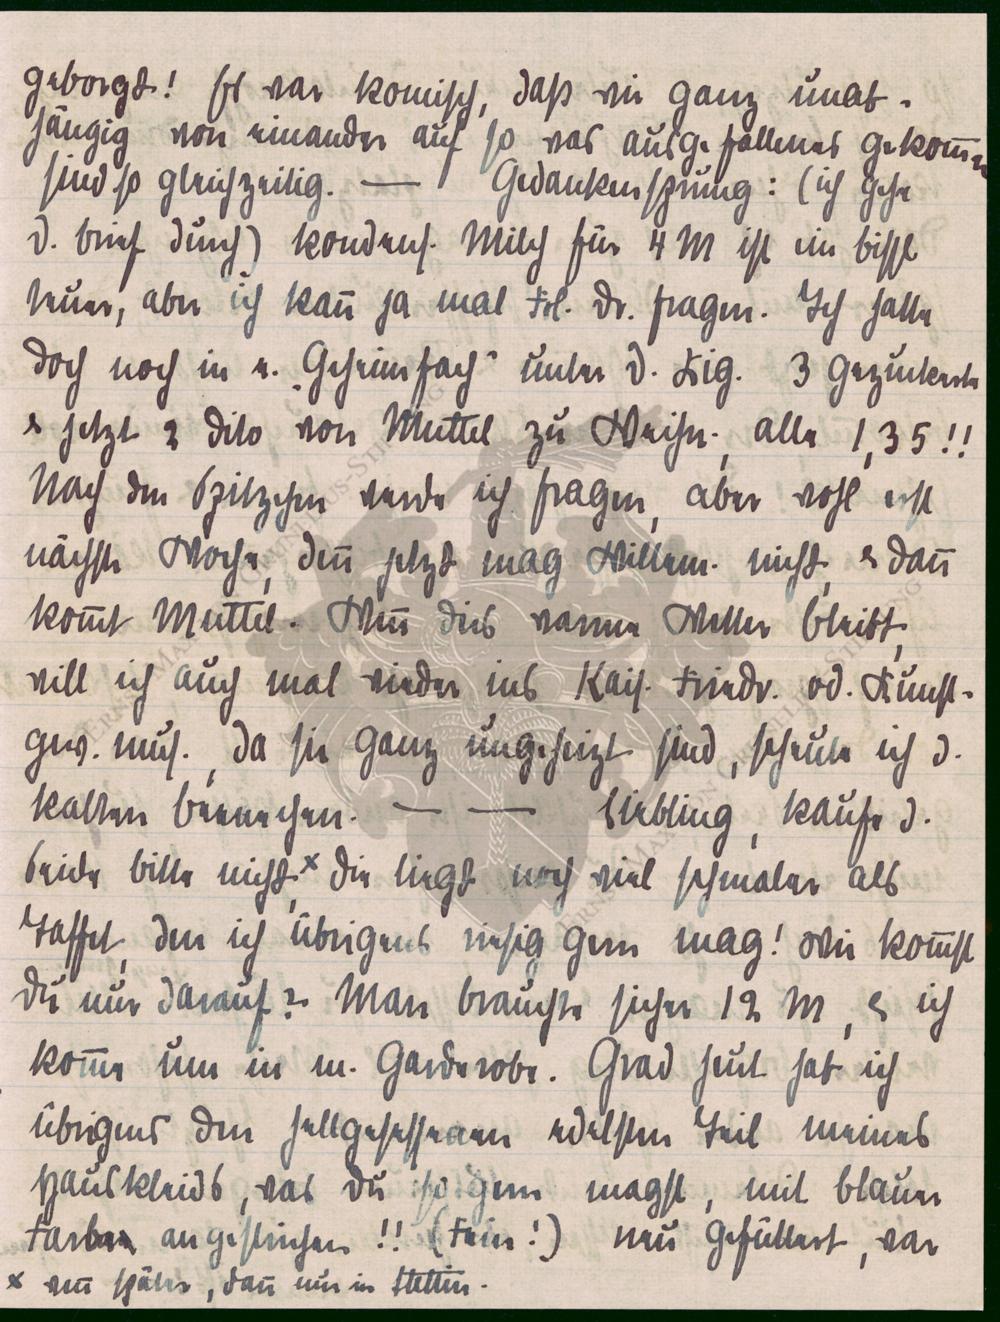 geborgt! Es war komisch, daß wir ganz unab-
hängig von einander auf so was ausgefallenes gekom̅en
sind so gleichzeitig. — Gedankensprung: (ich gehe
d. brief durch) kondens. Milch für 4 M ist ein bissl
teuer, aber ich kan̅ ja mal Frl. Dr. fragen. Ich hatte
doch noch in m. „Geheimfach" unter d. Lig. 3 Gezuckerte
& jetzt 2 dito von Muttel zu Weihn., alle 1,35!!
Nach den Spitzchen werde ich fragen, aber wohl erst
nächste Woche, den̅ jetzt mag Willem. nicht, & dan̅
kom̅t Muttel. Wen̅ dies warme Wetter bleibt,
will ich auch mal wieder ins Kais. Friedr. od. Kunst-
gew. mus., da sie ganz ungeheizt sind, scheute ich d.
kalten
Liebling, kaufe d.
Seide bitte nicht,ˣ die liegt noch viel schmaler als
Taffet, den ich übrigens riesig gern mag! Wie kom̅st
du nur darauf? Man brauchte sicher 12 M, & ich
kom̅e um in m. Garderobe. Grad heut hab ich
übrigens den hellgesessenen edelsten Teil meines
Hauskleids, was du so gern magst, mit blauer
Farbe angestrichen!! (Fein!) neu gefüttert, war
x wen̅ später, dan̅ nur in Stettin.